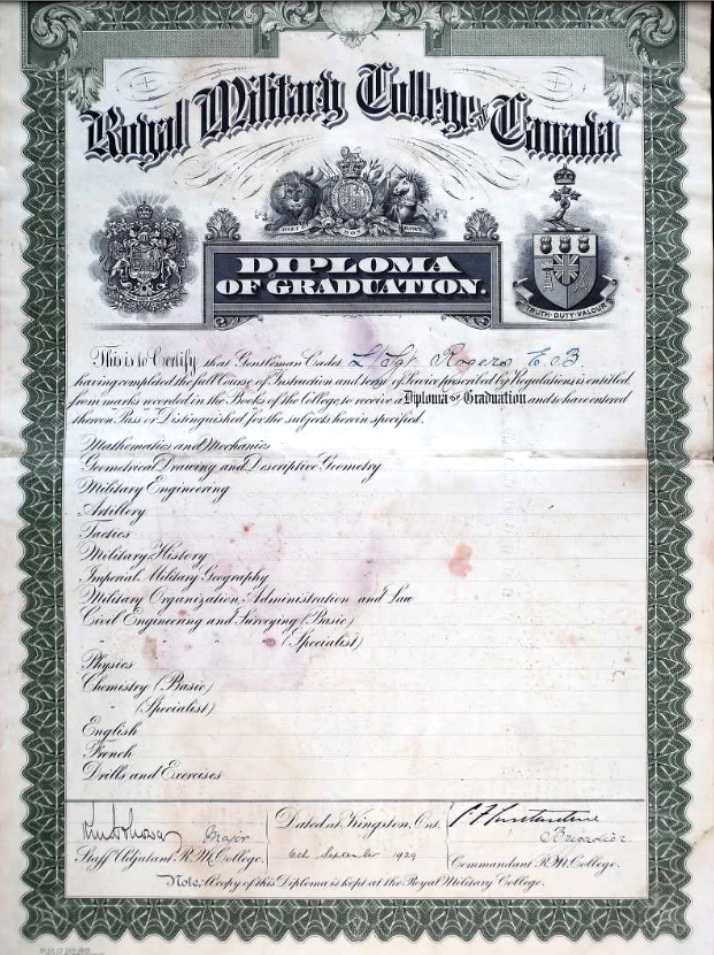 Royal Military College of Canada
DIEU ET MON DROIT
DIPLOMA
OF GRADUATION.
TRUTH·DUTY·VALOUR
This is to Certify that Gentleman Cadet L/Sgt. Rogers E.B.
having completed the full Course of Instruction and term of Service prescribed by Regulations is entitled
from marks recorded in the Books of the College to receive a Diploma of Graduation and to have entered
thereon Pass or Distinguished for the subjects herein specified.
Mathematics and Mechanics
Geometrical Drawing and Descriptive Geometry
Military Engineering
Artillery
Tactics
Military History
Imperial Military Geography
Military Organization, Administration and Law
Civil Engineering and Surveying (Basic)
" " " (Specialist)
Physics
Chemistry (Basic)
" (Specialist)
English
French
Drills and Exercises
Major
Staff Adjutant R.M. College.
Dated at Kingston, Ont.
September 1929
Brigadier
Commandant R.M. College.
Note, A copy of this Diploma is kept at the Royal Military College.